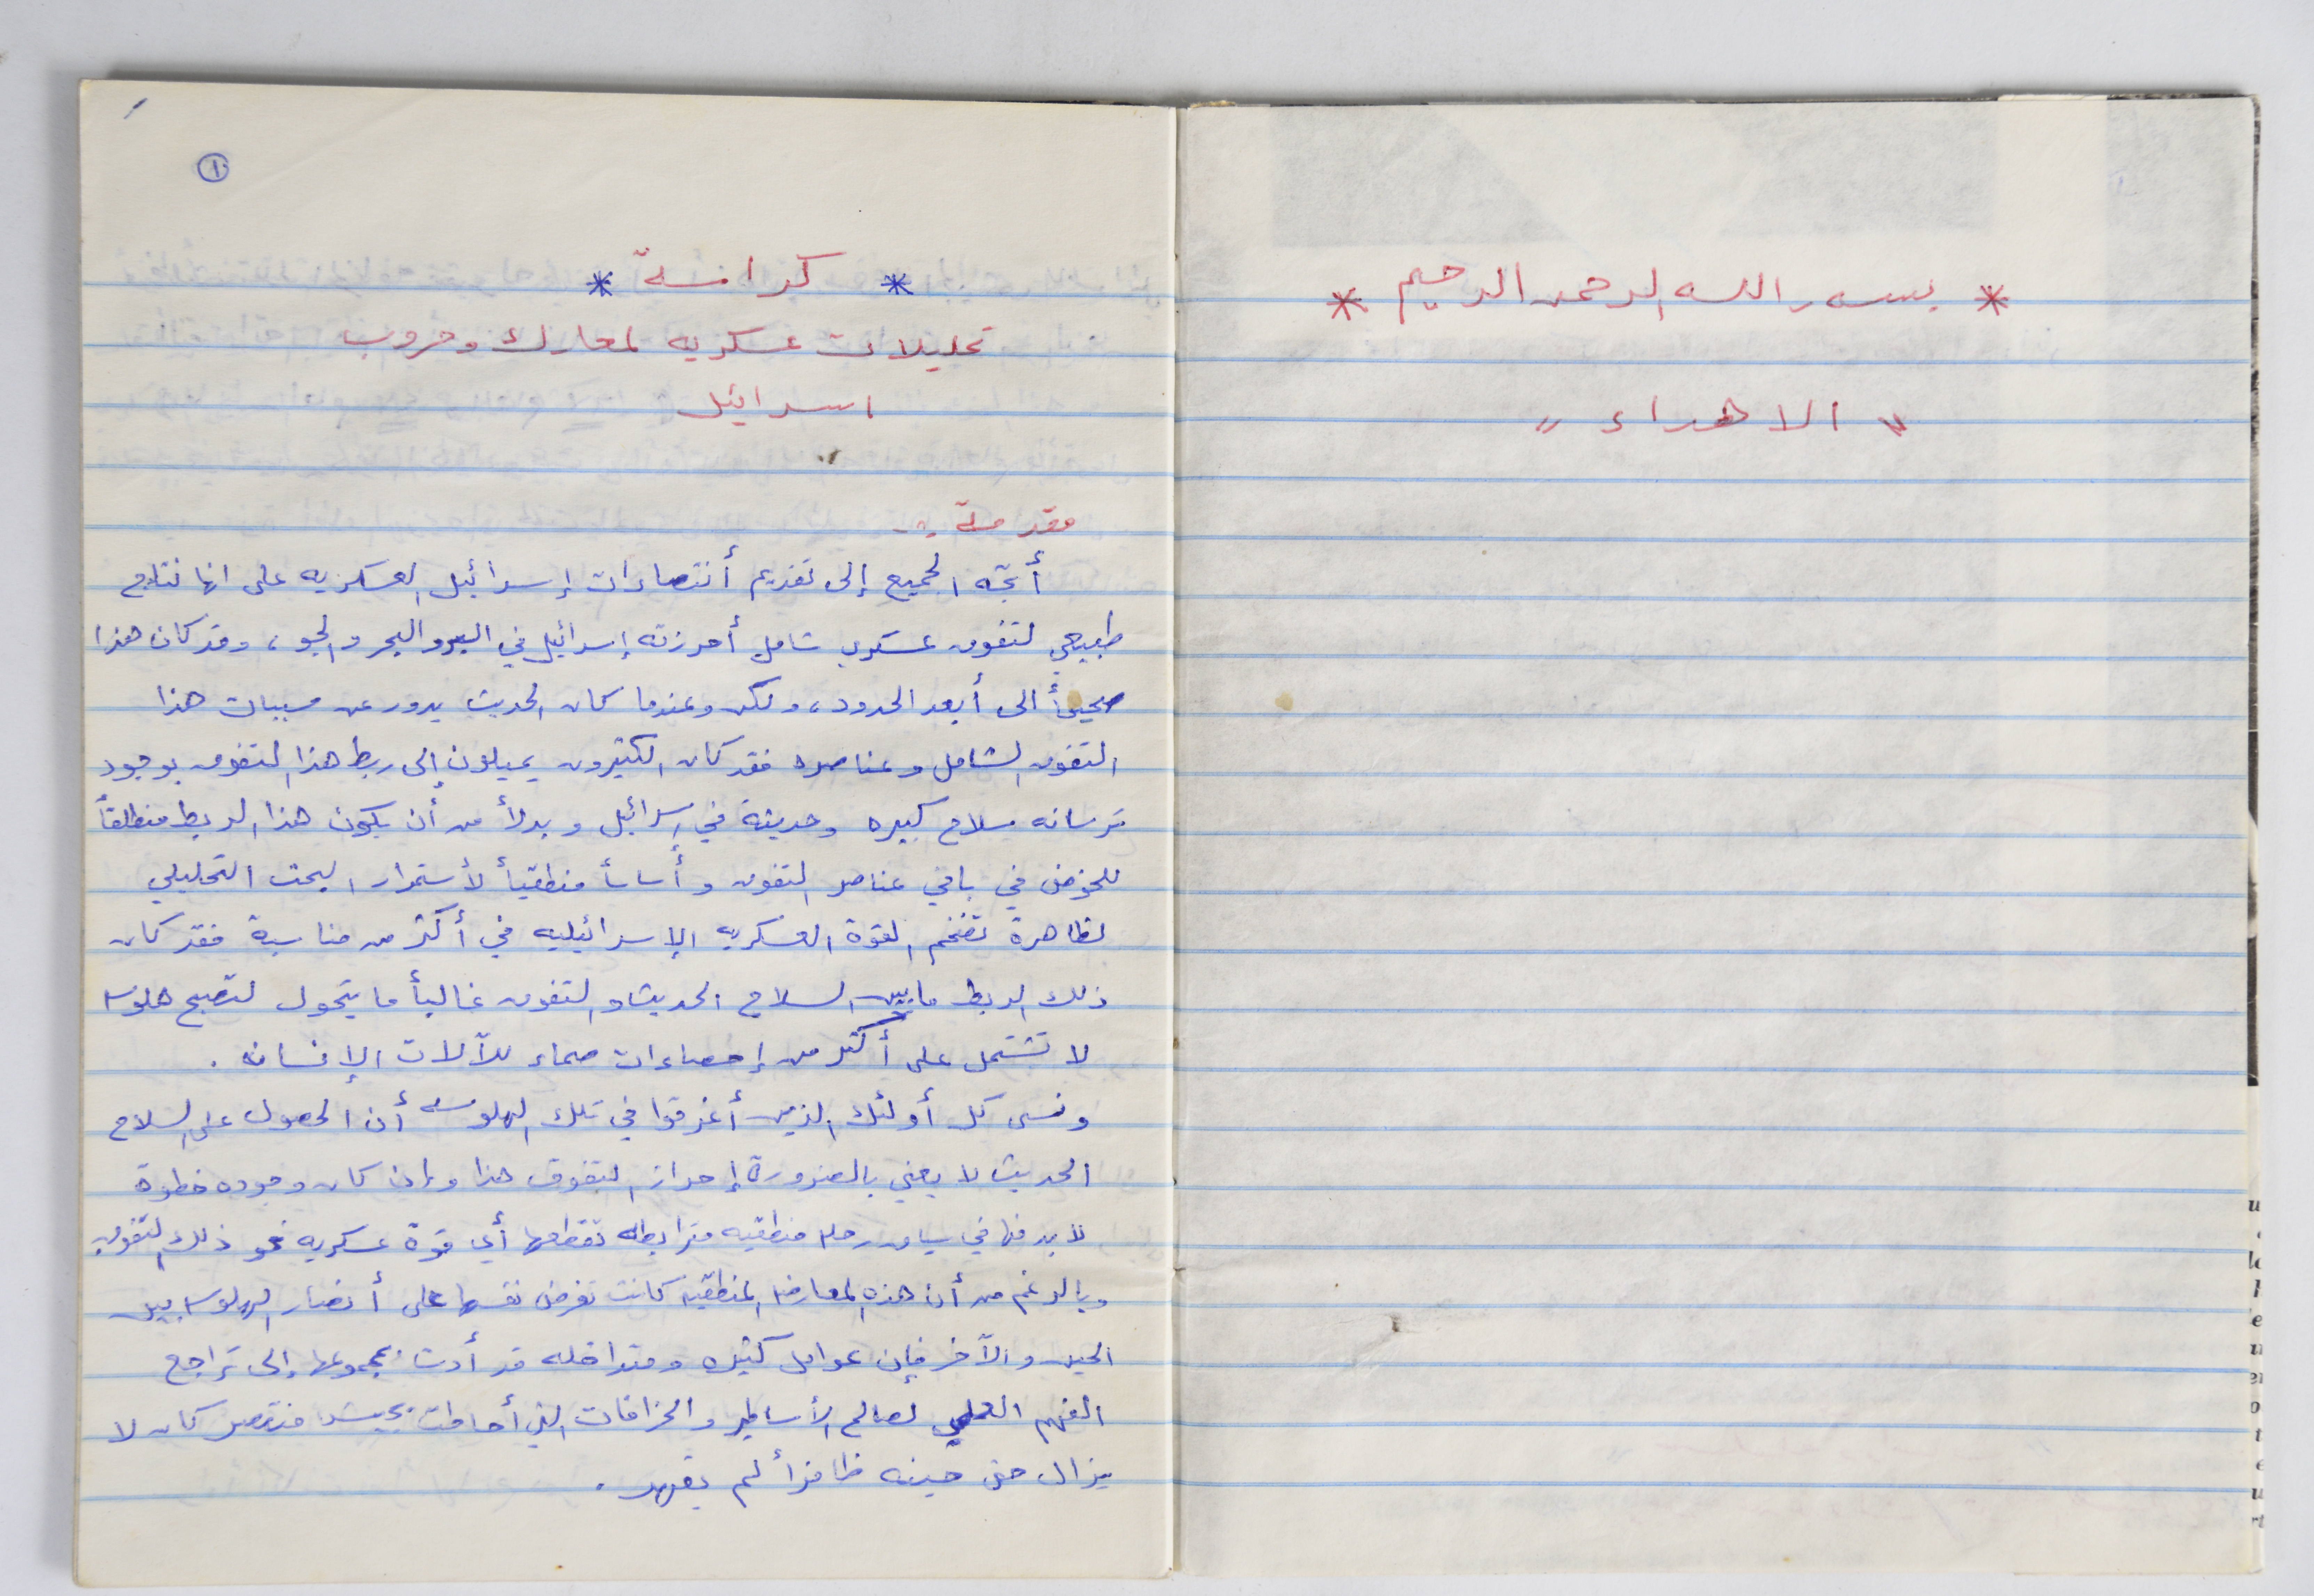 * بسم الله الرحمن الرحيم *
" الاهداء "
١
* كراسة *
تحليلات عسكريه لمعارك وحروب
اسرائيل
مقدمة :-
أتجه الجميع إلى تقديم أنتصارات إسرائيل العسكريه على انها نتاج
طبيعي لتفوق عسكري شامل أحرزته إسرائيل في البر والبحر والجو ، وقد كان هذا
صحيحأ الى أبعد الحدود ، ولكن وعندما كان الحديث يدور عن مسببات هذا
التفوق الشامل وعناصره فقد كان الكثيرون يميلون إلى ربط هذا التفوق بوجود
ترسانه سلاح كبيره وحديثة في إسرائيل وبدلأ من أن يكون هذا الربط منطلقأ
للخوض في باقي عناصر التفوق وأساسأ منطقيأ لأستمرار البحث التحليلي
لظاهرة تضخم القوة العسكريه الإسرائيليه في أكثر من مناسبة فقد كان
ذلك الربط ما بين السلاح الحديث والتفوق غالبأ ما يتحول لتصبح هلوسه
لا تشتمل على أكثر من إحصاءات صماء للآلات الإنسانه .
ونسى كل أولئك الذين أغرقوا في تلك الهلوسه أن الحصول على السلاح
الحديث لا يعني بالضرورة إحراز التفوق هذا وإن كان وجوده خطوة
لا بد منها في سياق رحله منطقيه مترابطه تقطعها أي قوة عسكريه نحو ذلك التفوق
وبالرغم من أن هذه المعارضه المنطقيه كانت تفرض نفسها على أنصار الهلوسه بين
الحين والآخر فإن عوامل كثيره ومتداخله قد أدت بمجموعها إلى تراجع
الفهم العلمي لصالح الأساطير والخرافات التي أحاطت بجيش منتصر كان لا
يزال حتى حينه ظافرأ لم يقهر .